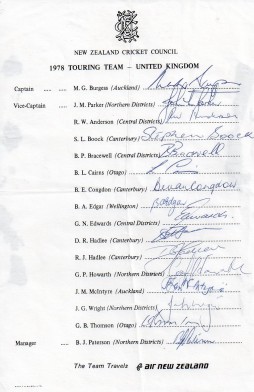 NEW ZEALAND CRICKET COUNCIL
1978 TOURING TEAM – UNITED KINGDOM
Captain .... M. G. Burgess (Auckland)
Vice-Captain .... J. M. Parker (Northern Districts)
R. W. Anderson (Central Districts)
S. L. Boock (Canterbury) Stephen Boock
B. P. Bracewell (Central Districts) B Bracewell
B. L. Cairns (Otago)
B. E. Congdon (Canterbury) Bevan Congdon
B. A. Edgar (Wellington) B Edgar
G. N. Edwards (Central Districts) Edwards
D. R. Hadlee (Canterbury)
R. J. Hadlee (Canterbury)
G. P. Howarth (Northern Districts)
J. M. McIntyre (Auckland)
J. G. Wright (Northern Districts)
G. B. Thomson (Otago)
Manager .... B. J. Paterson (Northern Districts)
The Team Travels air NEW ZEALAND